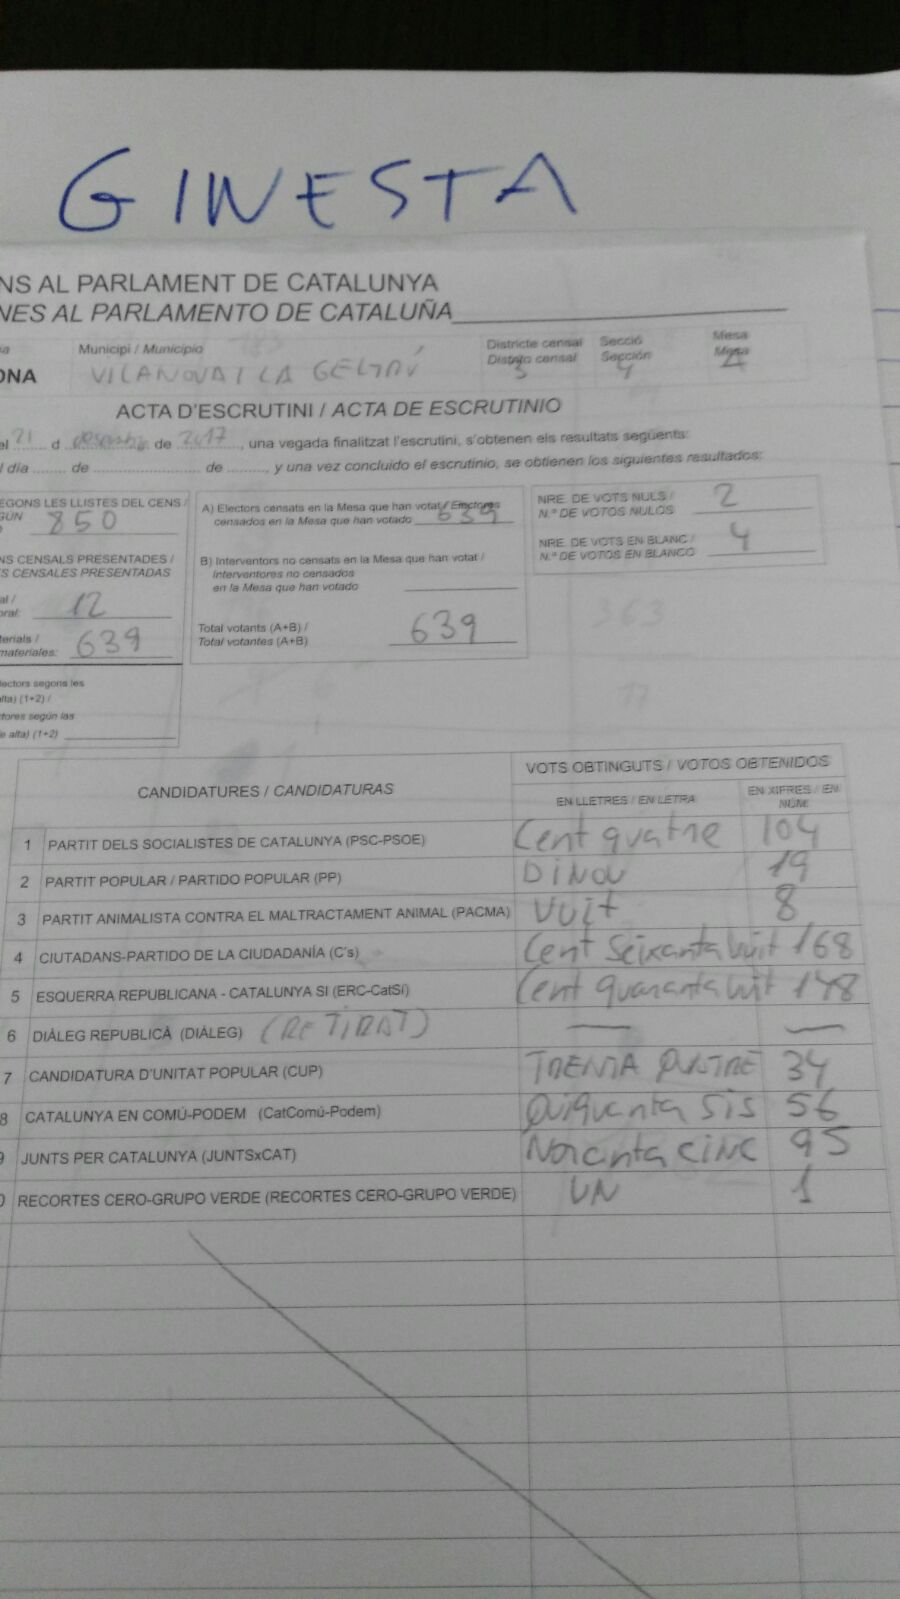 GINESTA
NS AL PARLAMENT DE CATALUNYA
NES AL PARLAMENTO DE CATALUÑA
Municipi / Municipio
Districte censal
Distrito censal
Secció
Sección
Mesa
Mesa
ONA
VILANOVA I LA GELTRÚ
3
4
ACTA D'ESCRUTINI / ACTA DE ESCRUTINIO
el 21 d de 2017, una vegada finalitzat l'escrutini, s'obtenen els resultats següents:
l día ........ de ........ de ........, y una vez concluido el escrutinio, se obtienen los siguientes resultados:
EGONS LES LLISTES DEL CENS /
GÚN
850
NS CENSALS PRESENTADES /
S CENSALES PRESENTADAS
al /
oral: 12
terials /
materiales: 639
lectors segons les
alta) (1+2) /
tores según las
e alta) (1+2)
A) Electors censats en la Mesa que han votat / Electores
censados en la Mesa que han votado 639
B) Interventors no censats en la Mesa que han votat /
Interventores no censados
en la Mesa que han votado
Total votants (A+B) /
Total votantes (A+B) 639
NRE. DE VOTS NULS /
N.º DE VOTOS NULOS 2
NRE. DE VOTS EN BLANC /
N.º DE VOTOS EN BLANCO 4
363
77
CANDIDATURES / CANDIDATURAS
VOTS OBTINGUTS / VOTOS OBTENIDOS
EN LLETRES / EN LETRA
EN XIFRES / EN
NÚM.
1 PARTIT DELS SOCIALISTES DE CATALUNYA (PSC-PSOE) Cent quatre 104
2 PARTIT POPULAR / PARTIDO POPULAR (PP) DINOU 19
3 PARTIT ANIMALISTA CONTRA EL MALTRACTAMENT ANIMAL (PACMA) VUIT 8
4 CIUTADANS-PARTIDO DE LA CIUDADANÍA (C's) Cent Seixanta vuit 168
5 ESQUERRA REPUBLICANA - CATALUNYA SÍ (ERC-CatSí) Cent quaranta vuit 148
6 DIÀLEG REPUBLICÀ (DIÀLEG) (RETIRAT) — —
7 CANDIDATURA D'UNITAT POPULAR (CUP) TRENTA QUATRE 34
8 CATALUNYA EN COMÚ-PODEM (CatComú-Podem) Quiquanta sis 56
9 JUNTS PER CATALUNYA (JUNTSxCAT) Norcanta cinc 95
0 RECORTES CERO-GRUPO VERDE (RECORTES CERO-GRUPO VERDE) UN 1